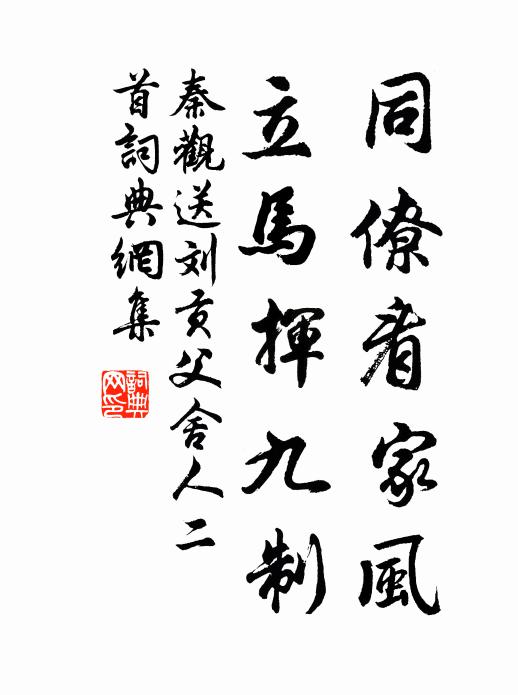 同僚看家風
立馬揮九制
秦觀送刘貢父舍人二
首詞典網集
詞典
网印